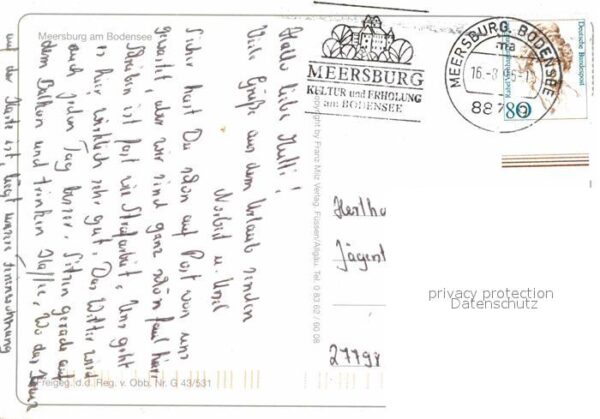 Meersburg am Bodensee
Hallo liebe Mutti!
Viele Grüße aus dem Urlaub senden
Norbert u. Ursel
Sicher hast Du schon auf Post von uns
gewartet, aber wir sind ganz schön faul hier
Schreiben ist fast wie Strafarbeit, Uns geht
es hier wirklich sehr gut. Das Wetter wird
auch jeden Tag besser. Sitzen gerade auf
dem Balkon und trinken Kaffee, Wo das
auf der Karte ist, liegt unsere Ferienwohnung
Freigeg. d.d. Reg. v. Obb. Nr. G 43/531
Copyright by Franz Milz Verlag, Füssen/Allgäu, Tel. 0 83 62 / 60 08
MEERSBURG
KULTUR und ERHOLUNG
am BODENSEE
MEERSBURG, BODENSEE
ma
16.-8
887
Deutsche Bundespost
80
Hertho
Jägerst
27798
privacy protection
Datenschutz